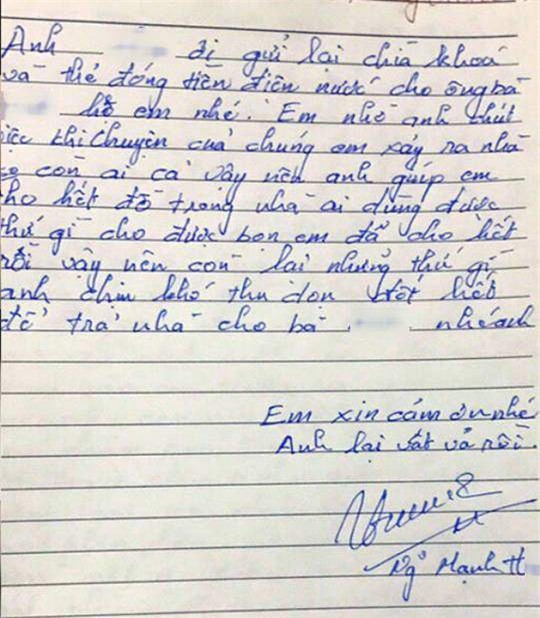 Anh ơi gửi lại chìa khoá
và thẻ đóng tiền điện nước cho ông bà
hộ em nhé. Em nhờ anh chút
việc thì chuyện của chúng em xảy ra nhà
còn ai cả vậy nên anh giúp em
cho hết đồ trong nhà ai dùng được
thứ gì cho được bọn em đã cho hết
rồi vậy nên còn lại những thứ gì
anh chịu khó thu dọn đốt hết
để trả nhà cho bà nhé anh
Em xin cám ơn nhé
Anh lại vất vả rồi.
Mạnh H